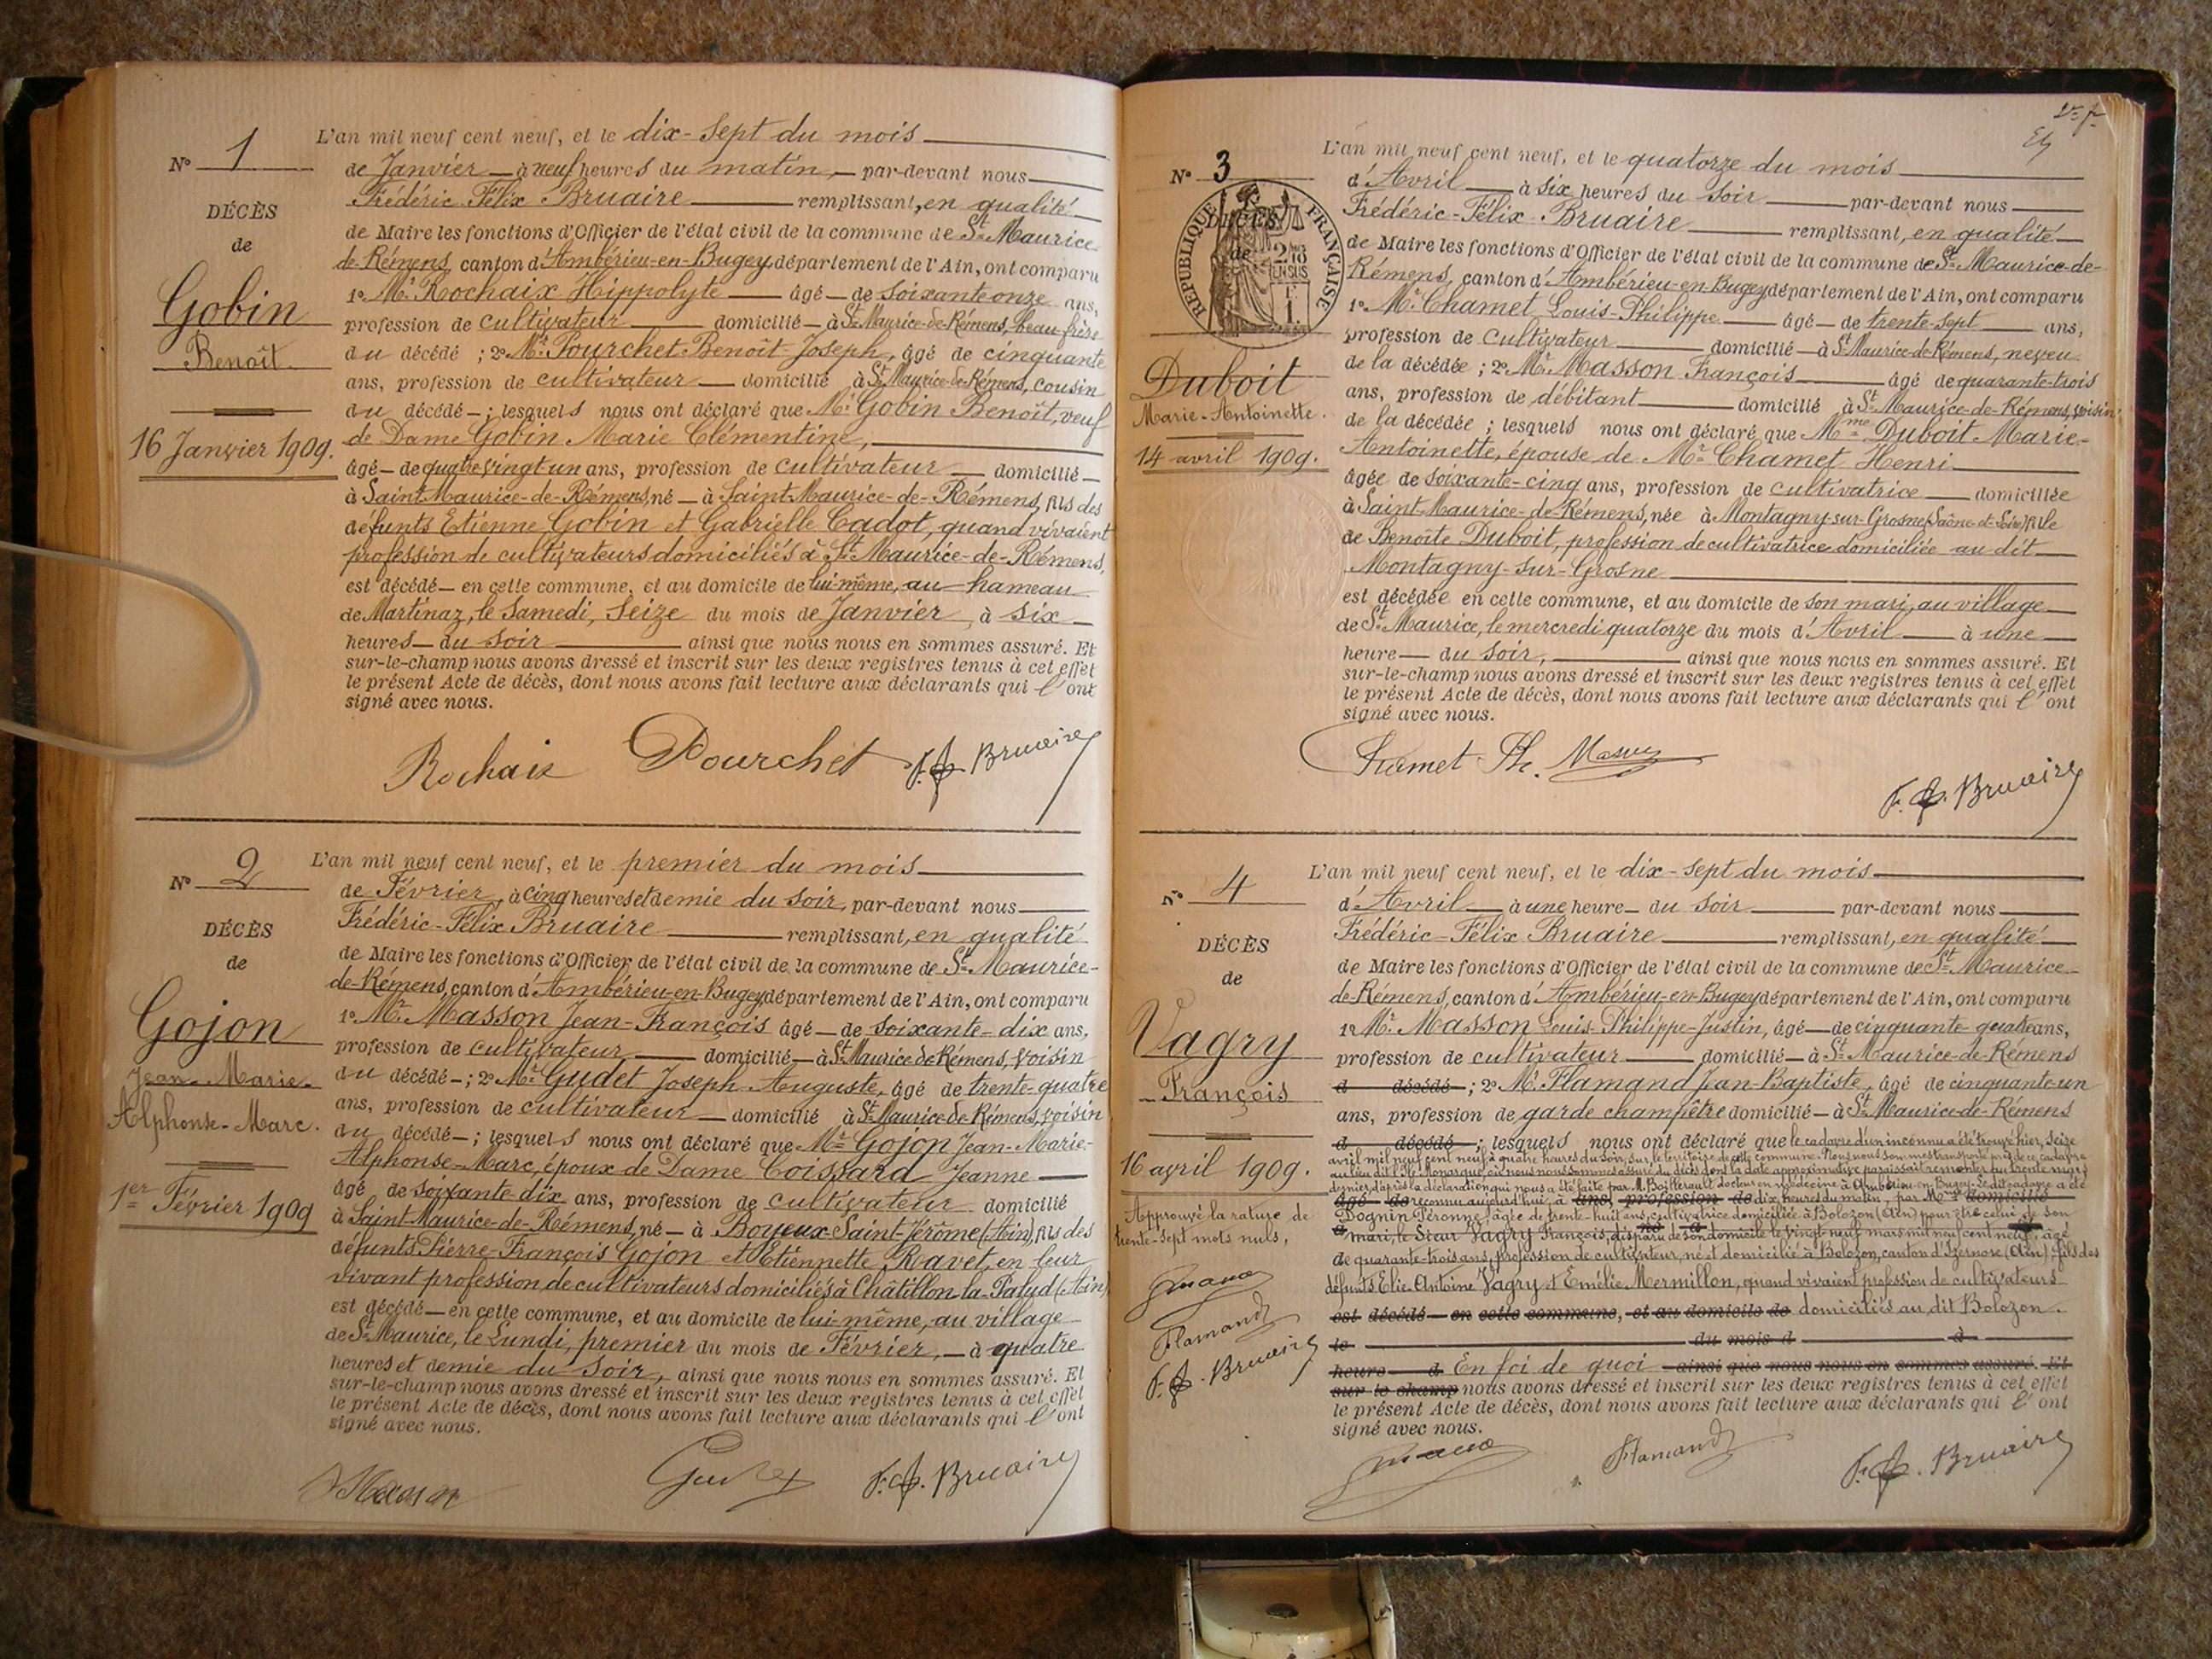 N° 1
DÉCÈS
de
Gobin
Benoît
16 Janvier 1909.
L'an mil neuf cent neuf, et le dix-sept du mois
de Janvier à neuf heures du matin, par-devant nous
Frédéric Félix Bruaire remplissant, en qualité
de Maire les fonctions d'Officier de l'état civil de la commune de St Maurice-
de-Rémens, canton d'Ambérieu-en-Bugey, département de l'Ain, ont comparu
1° Mr Rochaix Hippolyte âgé de soixante onze ans,
profession de cultivateur domicilié à St Maurice-de-Rémens, beau-frère
du décédé ; 2° Mr Pourchet Benoît Joseph, âgé de cinquante
ans, profession de cultivateur domicilié à St Maurice-de-Rémens, cousin
du décédé ; lesquels nous ont déclaré que Mr Gobin Benoît, veuf
de Dame Gobin Marie Clémentine,
âgé de quatre vingt un ans, profession de cultivateur domicilié
à Saint Maurice-de-Rémens, né à Saint Maurice-de-Rémens, fils des
défunts Etienne Gobin et Gabrielle Cadot, quand vivaient
profession de cultivateurs domiciliés à St Maurice-de-Rémens,
est décédé en cette commune, et au domicile de lui-même, au hameau
de Martinaz, le Samedi, seize du mois de Janvier, à six
heures du soir ainsi que nous nous en sommes assuré. Et
sur-le-champ nous avons dressé et inscrit sur les deux registres tenus à cet effet
le présent Acte de décès, dont nous avons fait lecture aux déclarants qui l'ont
signé avec nous.
Rochaix Pourchet F. F. Bruaire
N° 2
DÉCÈS
de
Gojon
Jean-Marie-
Alphonse-Marc.
1er Février 1909
L'an mil neuf cent neuf, et le premier du mois
de Février, à cinq heures et demie du soir, par-devant nous
Frédéric-Félix Bruaire remplissant, en qualité
de Maire les fonctions d'Officier de l'état civil de la commune de St Maurice-
de-Rémens, canton d'Ambérieu-en-Bugey département de l'Ain, ont comparu
1° Mr Masson Jean-François âgé de soixante-dix ans,
profession de cultivateur domicilié à St Maurice de Rémens, voisin
du décédé ; 2° Mr Gudet Joseph Auguste, âgé de trente-quatre
ans, profession de cultivateur domicilié à St Maurice de Rémens, voisin
du décédé ; lesquels nous ont déclaré que Mr Gojon Jean-Marie-
Alphonse-Marc, époux de Dame Coissard Jeanne
âgé de soixante-dix ans, profession de cultivateur domicilié
à Saint Maurice-de-Rémens, né à Boyeux-Saint-Jérôme (Ain), fils des
défunts Pierre-François Gojon et Etiennette Ravet, en leur
vivant profession de cultivateurs domiciliés à Châtillon-la-Palud (Ain)
est décédé en cette commune, et au domicile de lui-même, au village
de St Maurice, le Lundi, premier du mois de Février, à quatre
heures et demie du soir, ainsi que nous nous en sommes assuré. Et
sur-le-champ nous avons dressé et inscrit sur les deux registres tenus à cet effet
le présent Acte de décès, dont nous avons fait lecture aux déclarants qui l'ont
signé avec nous.
F. F. Bruaire
N° 3
RÉPUBLIQUE FRANÇAISE
DÉCÈS
de
2/10
EN SUS
Duboit
Marie-Antoinette.
14 avril 1909.
L'an mil neuf cent neuf, et le quatorze du mois
d'Avril à six heures du soir par-devant nous
Frédéric-Félix Bruaire remplissant, en qualité
de Maire les fonctions d'Officier de l'état civil de la commune de St Maurice-de-
Rémens, canton d'Ambérieu-en-Bugey département de l'Ain, ont comparu
1° Mr Chamet Louis-Philippe âgé de trente-sept ans,
profession de cultivateur domicilié à St Maurice-de-Rémens, neveu
de la décédée ; 2° Mr Masson François âgé de quarante-trois
ans, profession de débitant domicilié à St Maurice-de-Rémens, voisin
de la décédée ; lesquels nous ont déclaré que Mme Duboit Marie-
Antoinette, épouse de Mr Chamet Henri
âgée de soixante-cinq ans, profession de cultivatrice domiciliée
à Saint-Maurice-de-Rémens, née à Montagny-sur-Grosne (Saône-et-Loire) fille
de Benoîte Duboit, profession de cultivatrice domiciliée au dit
Montagny-sur-Grosne
est décédée en cette commune, et au domicile de son mari, au village
de St Maurice, le mercredi quatorze du mois d'Avril à une
heure du soir, ainsi que nous nous en sommes assuré. Et
sur-le-champ nous avons dressé et inscrit sur les deux registres tenus à cet effet
le présent Acte de décès, dont nous avons fait lecture aux déclarants qui l'ont
signé avec nous.
Chamet Ph. Masson
F. F. Bruaire
N° 4
DÉCÈS
de
Vagry
François
16 avril 1909.
Approuvé la rature de
trente-sept mots nuls,
Flamand
F. F. Bruaire
L'an mil neuf cent neuf, et le dix-sept du mois
d'Avril à une heure du soir par-devant nous
Frédéric-Félix Bruaire remplissant, en qualité
de Maire les fonctions d'Officier de l'état civil de la commune de St Maurice-
de-Rémens, canton d'Ambérieu-en-Bugey département de l'Ain, ont comparu
1° Mr Masson Louis-Philippe-Justin, âgé de cinquante-quatre ans,
profession de cultivateur domicilié à St Maurice-de-Rémens
d décédé ; 2° Mr Flamand Jean-Baptiste, âgé de cinquante un
ans, profession de garde champêtre domicilié à St Maurice-de-Rémens
d décédé ; lesquels nous ont déclaré que le cadavre d'un inconnu a été trouvé hier, seize
avril mil neuf cent neuf à quatre heures du soir, sur le territoire de cette commune. Nous nous sommes transporté près de ce cadavre
au lieu dit l'île et nous nous sommes assuré du décès dont la date approximative paraissait remonter au trente mars
dernier, d'après la déclaration qui nous a été faite par M. docteur en médecine à Ambérieu-en-Bugey. Ledit cadavre a été
âgé de reconnu aujourd'hui, à ans, profession de dix heures du matin, par Mme domicilié
Dognin Péronne, âgée de trente-huit ans, cultivatrice domiciliée à Bolozon (Ain) pour être celui de son
mari, le Sieur Vagry François, disparu de son domicile le vingt-neuf mars mil neuf cent neuf, âgé
de quarante-trois ans, profession de cultivateur, né et domicilié à Bolozon, canton d'Izernore (Ain), fils des
défunts Elie-Antoine Vagry et Emélie Mermillon, quand vivaient profession de cultivateurs
est décédé en cette commune, et au domicile de domiciliés au dit Bolozon.
le du mois d à
heure d En foi de quoi ainsi que nous nous en sommes assuré. Et
sur-le-champ nous avons dressé et inscrit sur les deux registres tenus à cet effet
le présent Acte de décès, dont nous avons fait lecture aux déclarants qui l'ont
signé avec nous.
Flamand F. F. Bruaire